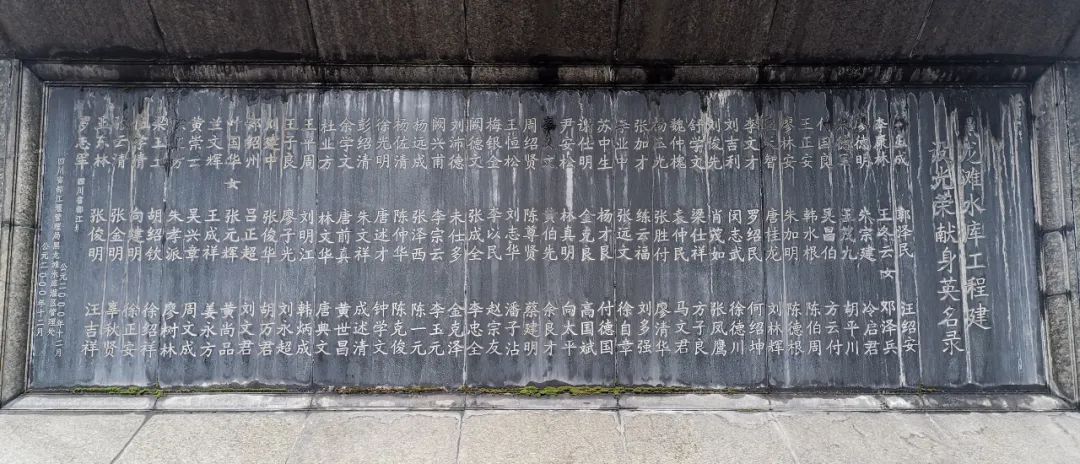 黑龙滩水库工程建
设光荣献身英名录
生成 郭泽民 汪绍安
李康林 王冬云女 邓泽兵
德明 朱宗建 冷启君
德军 茂九 胡平川
何国良 吴昌伯 方云付
王正安 韩水根 陈伯周
廖林安 朱加明 陈德根
天智 唐桂龙 刘林辉
李文才 罗绍民 何绍坤
刘吉利 闵志武 徐德川
刘俊先 肖茂如 张凤鹰
舒学文 梁仕祥 方子良
魏仲槐 袁仲民 马文君
光 张胜付 廖清华
张加才 练云福 刘多强
业中 张远文 徐自章
苏中生 杨才良 付德国
谢仕明 金克良 高国斌
尹安松 林真明 向太平
文 黄伯先 余良才
周绍贤 陈尊贤 蔡建明
王恒松 刘志华 潘子沾
梅银全 李以民 赵宗友
阙德文 张成全 李忠全
刘沛德 未仕多 金克泽
阙兴甫 李宗云 李玉元
杨远成 张泽西 陈一元
杨佐清 陈仲华 陈克俊
徐光明 唐述才 钟学文
彭绍清 朱文明 成述清
余学文 唐前真 黄世昌
杜业方 林文华 唐典文
王平周 刘明江 韩炳成
王子良 廖子光 刘永超
中 张俊华 胡万君
郑绍州 吕正超 刘文君
叶国华女 张元辉 黄尚品
兰文辉 王成祥 姜永方
黄崇云 吴兴章 周文成
方 朱孝派 廖树林
胡绍钦 徐绍祥
清 向建明 徐正安
云清 张金明 辜秋贤
王东林 张俊明 汪吉祥
罗志军
公元二〇〇〇年十二月